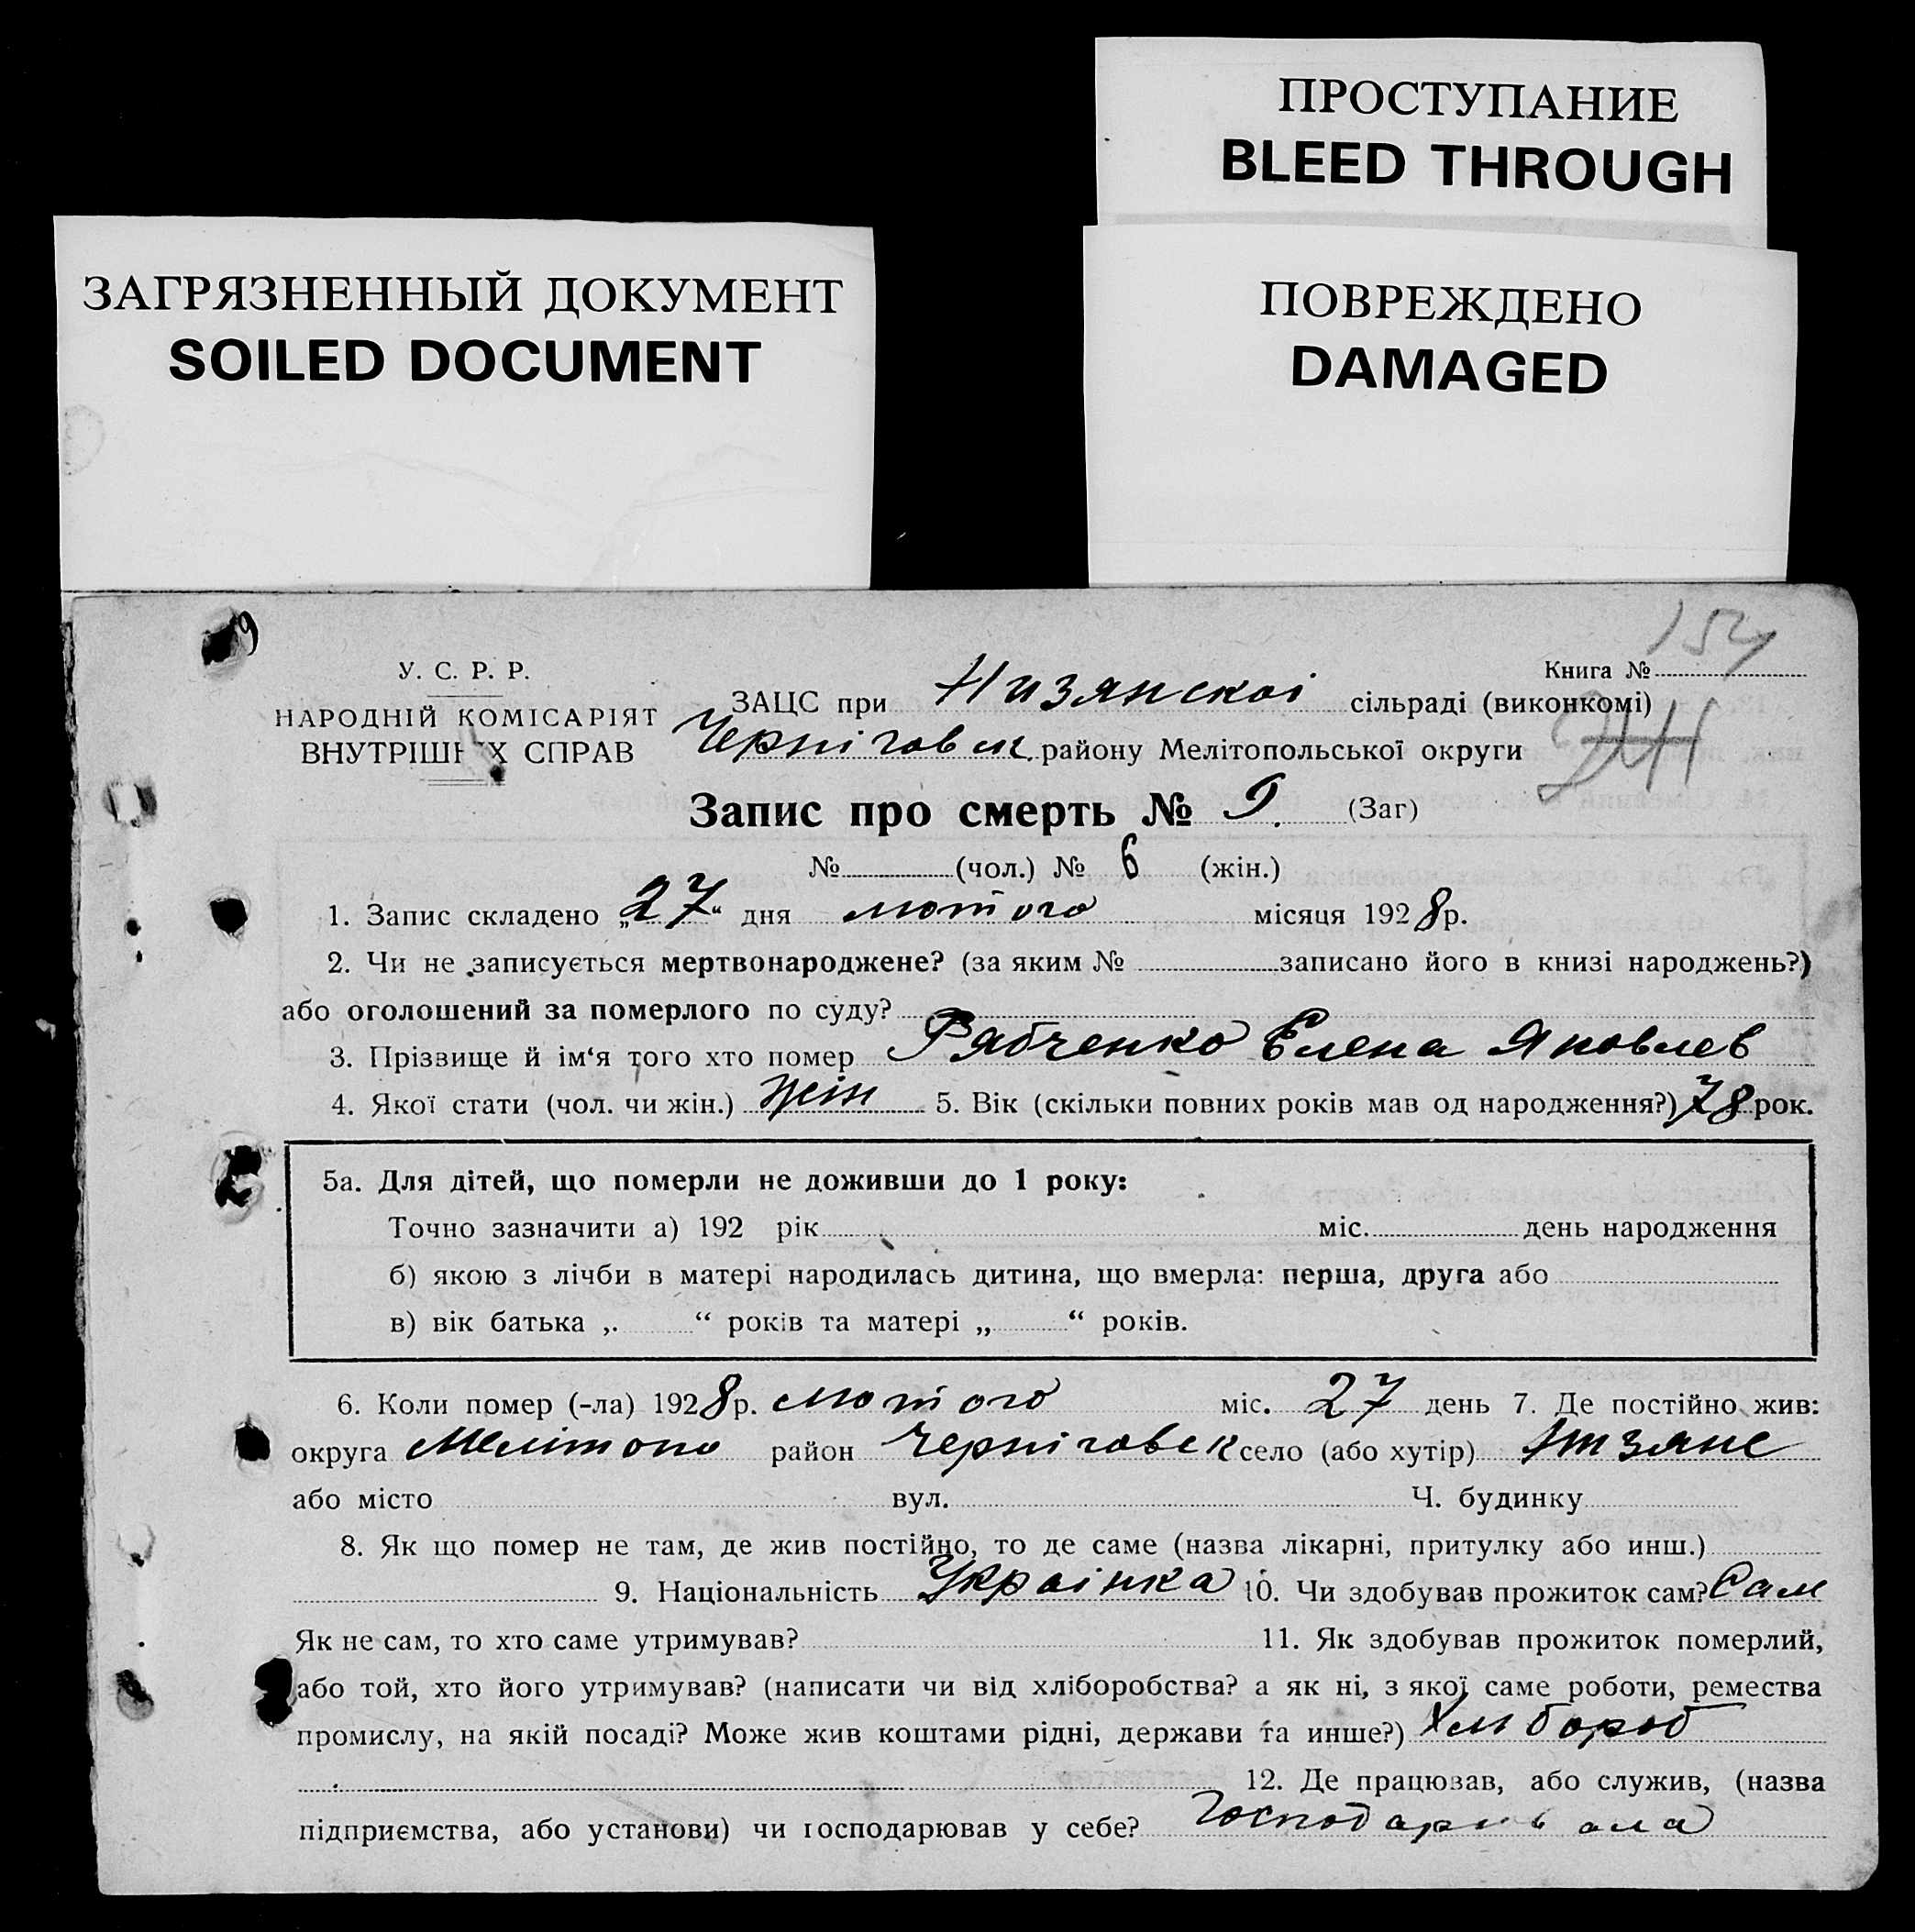 ПРОСТУПАНИЕ
BLEED THROUGH
ЗАГРЯЗНЕННЫЙ ДОКУМЕНТ
SOILED DOCUMENT
ПОВРЕЖДЕНО
DAMAGED
У. С. Р. Р.
НАРОДНІЙ КОМІСАРІЯТ
ВНУТРІШНІХ СПРАВ
Книга №
ЗАЦС при Низянскоі сільраді (виконкомі)
Черніговск. району Мелітопольської округи
Запис про смерть № 9. (Заг)
№ (чол.) № 6 (жін.)
1. Запис складено „27“ дня лютого місяця 1928 р.
2. Чи не записується мертвонароджене? (за яким № записано його в книзі народжень?)
або оголошений за померлого по суду?
3. Прізвище й ім‘я того хто помер Рябченко Елена Яковлев
4. Якої стати (чол. чи жін.) жін 5. Вік (скільки повних років мав од народження?) 78 рок.
5а. Для дітей, що померли не доживши до 1 року:
Точно зазначити а) 192 рік міс. день народження
б) якою з лічби в матері народилась дитина, що вмерла: перша, друга або
в) вік батька „ “ років та матері „ “ років.
6. Коли помер (-ла) 1928 р. лютого міс. 27 день 7. Де постійно жив:
округа Мелітопо район Черніговск село (або хутір) Низяне
або місто вул. Ч. будинку
8. Як що помер не там, де жив постійно, то де саме (назва лікарні, притулку або инш.)
9. Національність Украінка 10. Чи здобував прожиток сам? Сам
Як не сам, то хто саме утримував? 11. Як здобував прожиток померлий,
або той, хто його утримував? (написати чи від хліборобства? а як ні, з якої саме роботи, ремества
промислу, на якій посаді? Може жив коштами рідні, держави та инше?) Хлібороб
12. Де працював, або служив, (назва
підприємства, або установи) чи господарював у себе? Господарювала